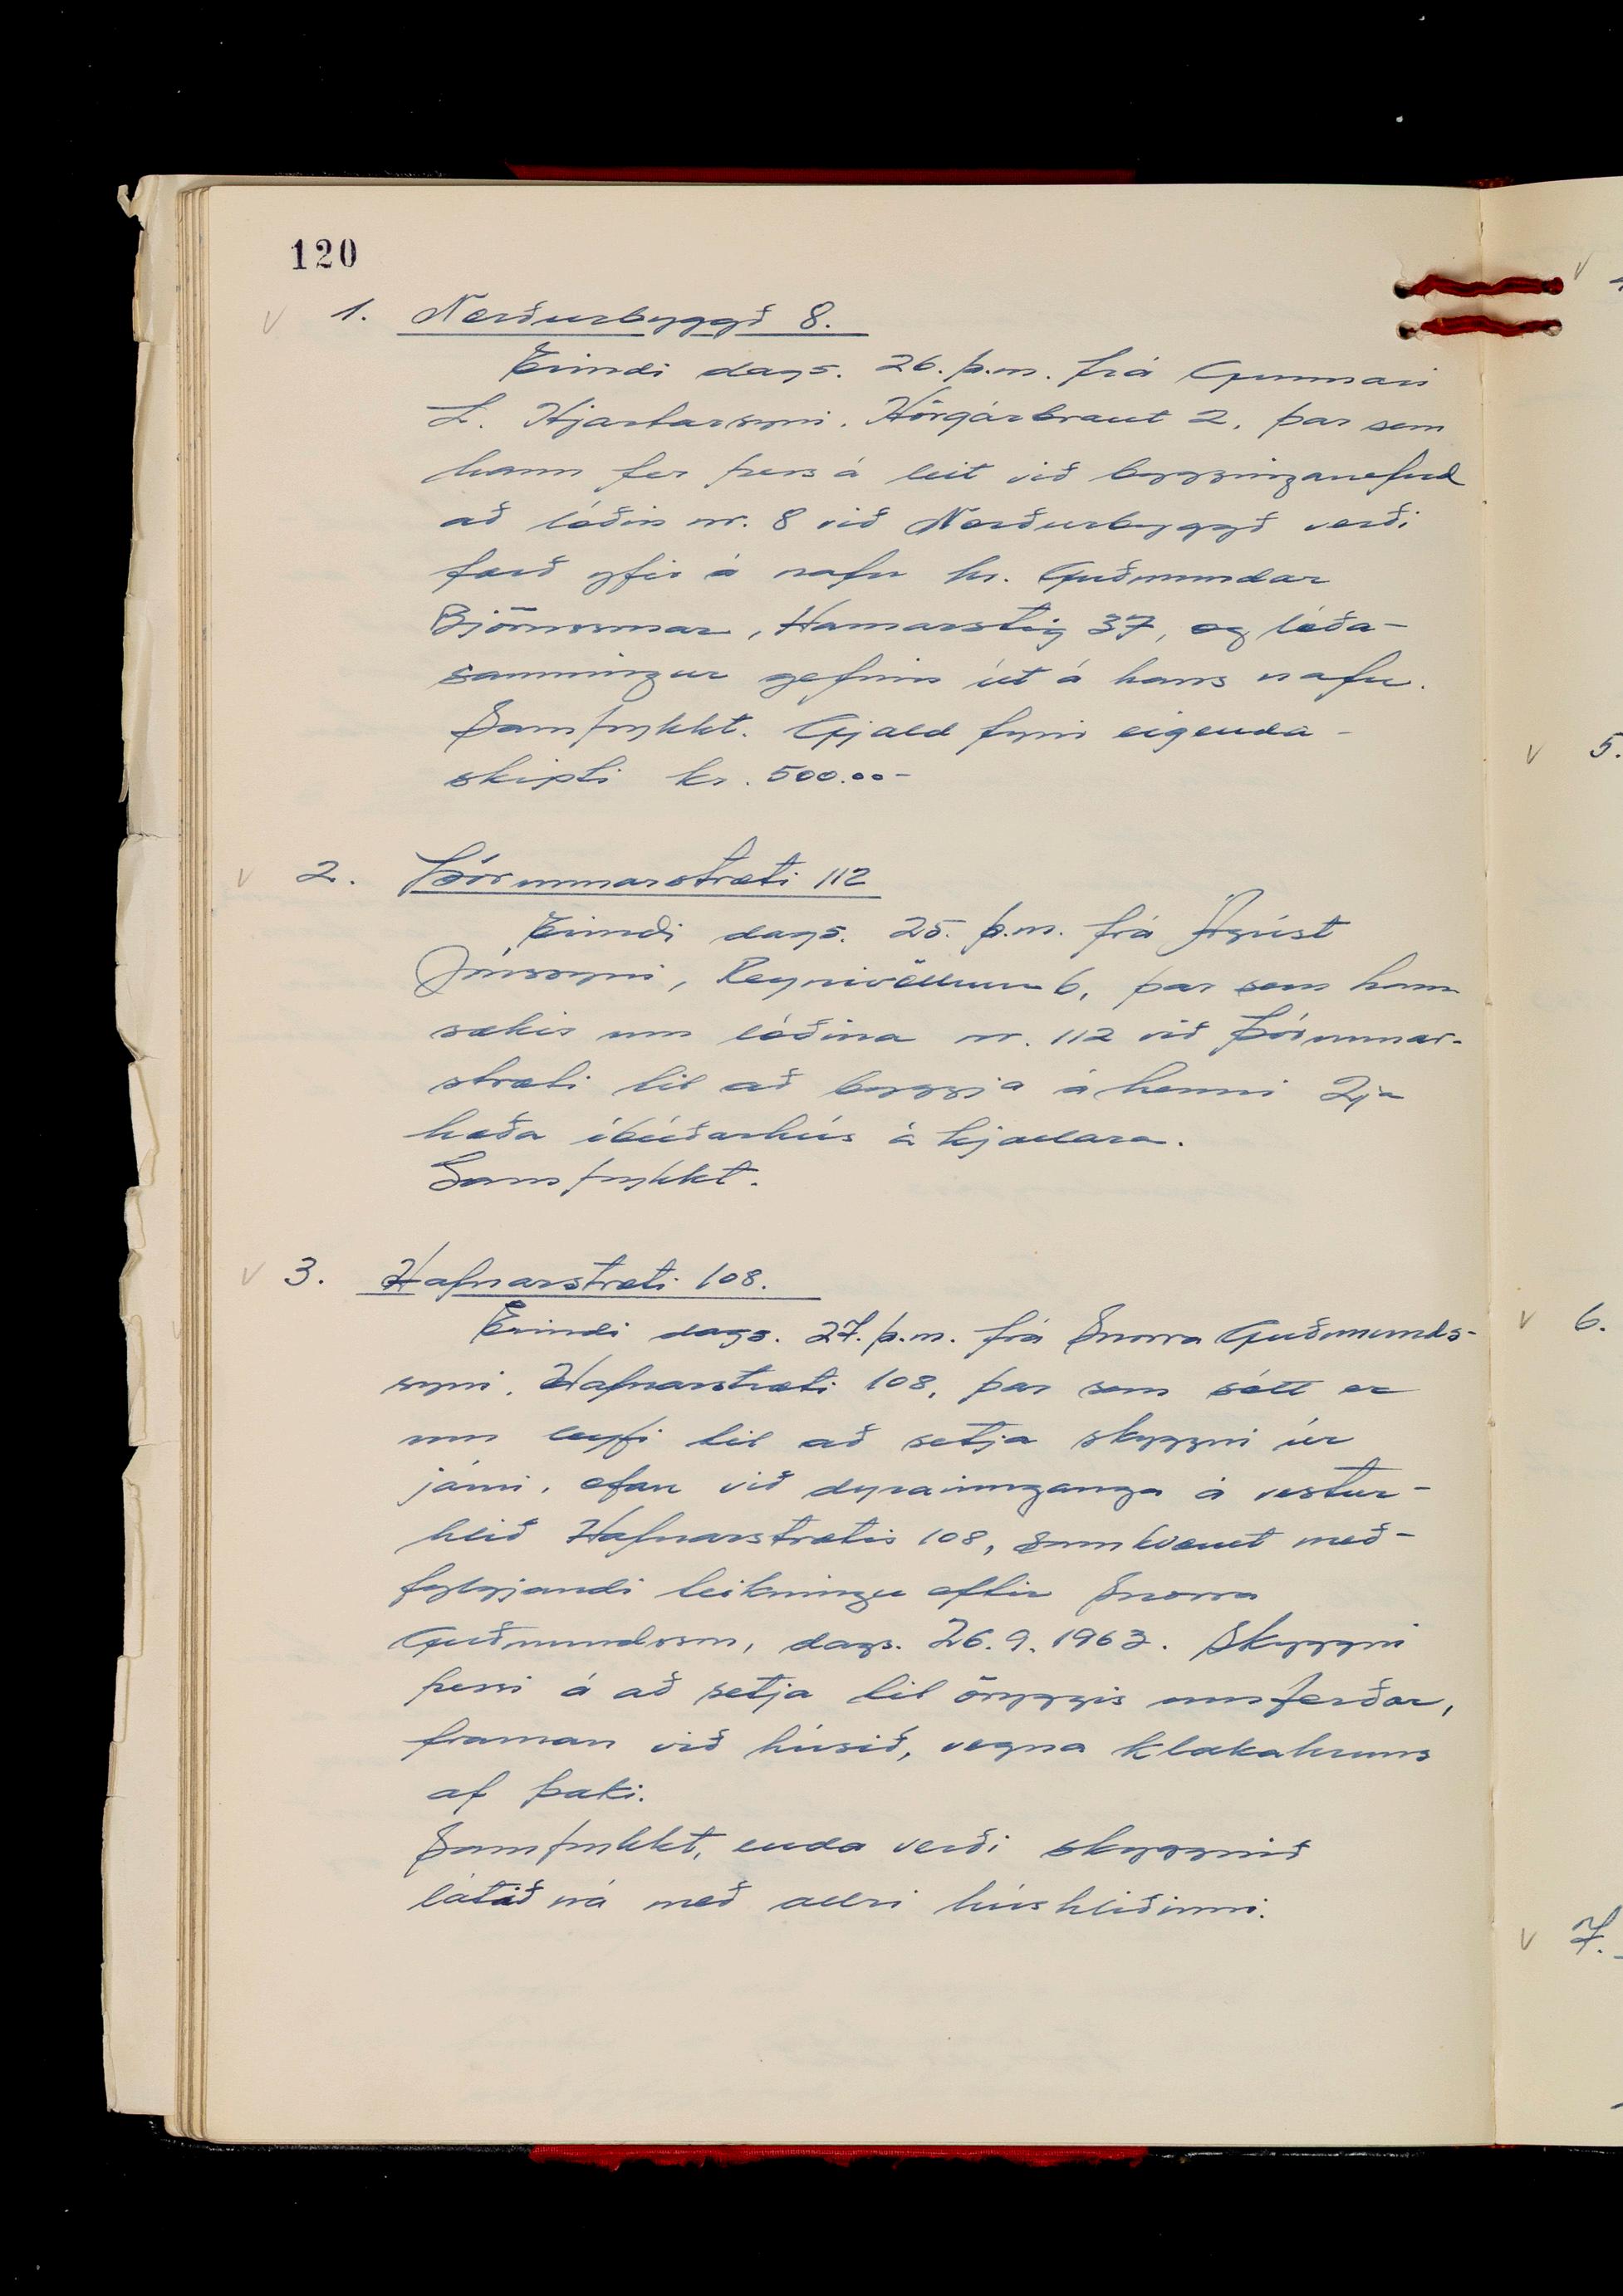 120
1. Norðurbyggð 8.
Erindi dags. 26. þ.m. frá Gunnari
L. Hjartarsyni, Hörgárbraut 2, þar sem
hann fer þess á leit við bygginganefnd
að lóðin nr. 8 við Norðurbyggð verði
færð yfir á nafn hr. Guðmundar
Björnssonar, Hamarstíg 37, og lóða-
samningur gefinn út á hans nafn.
Samþykkt. Gjald fyrir eigenda-
skipti kr. 500.00-
2. Þórunnarstræti 112
Erindi dags. 25. þ.m. frá Ágúst
Jónssyni, Reynivöllum 6, þar sem hann
sækir um lóðina nr. 112 við Þórunnar-
stræti til að byggja á henni 2ja
hæða íbúðarhús á kjallara.
Samþykkt.
3. Hafnarstræti 108.
Erindi dags. 27. þ.m. frá Snorra Guðmunds-
syni, Hafnarstræti 108, þar sem sótt er
um leyfi til að setja skyggni úr
járni, ofan við dyrainnganga á vestur-
hlið Hafnarstrætis 108, samkvæmt með-
fylgjandi teikningu eftir Snorra
Guðmundsson, dags. 26.9.1963. Skyggni
þessi á að setja til öryggis umferðar,
framan við húsið, vegna klakahruns
af þaki.
Samþykkt, enda verði skyggnið
látið ná með allri húshliðinni.
5.
6.
7.